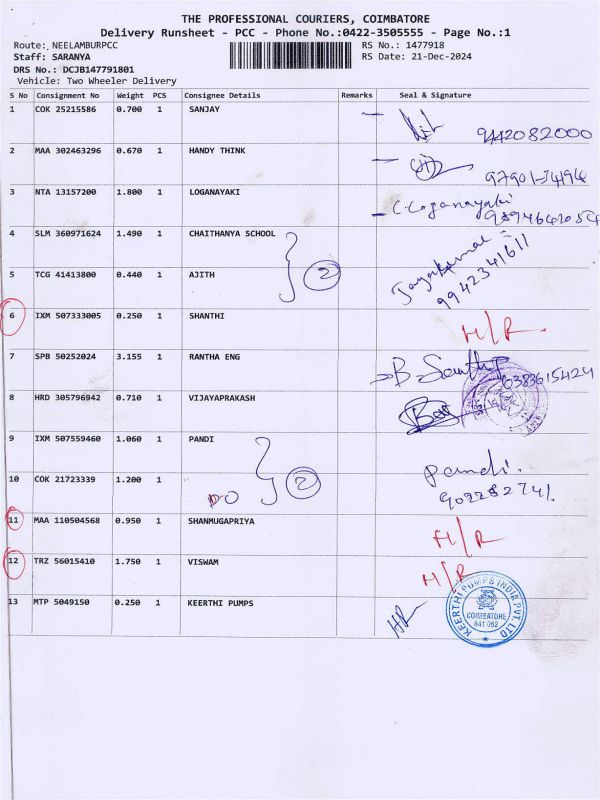 THE PROFESSIONAL COURIERS, COIMBATORE
Delivery Runsheet - PCC - Phone No.:0422-3505555 - Page No.:1
Route: NEELAMBURPCC RS No.: 1477918
Staff: SARANYA RS Date: 21-Dec-2024
DRS No.: DCJB147791801
Vehicle: Two Wheeler Delivery
S No Consignment No Weight PCS Consignee Details Remarks Seal & Signature
1 COK 25215586 0.700 1 SANJAY
9442082000
2 MAA 302463296 0.670 1 HANDY THINK
3 NTA 13157200 1.800 1 LOGANAYAKI
C. Loganayaki
4 SLM 360971624 1.490 1 CHAITHANYA SCHOOL
2
Jayakumar
9942341611
5 TCG 41413800 0.440 1 AJITH
6 IXM 507333005 0.250 1 SHANTHI
H/R
7 SPB 50252024 3.155 1 RANTHA ENG
6383615424
8 HRD 305796942 0.710 1 VIJAYAPRAKASH
9 IXM 507559460 1.060 1 PANDI
Pandi.
2
10 COK 21723339 1.200 1
DO
902282741.
11 MAA 110504568 0.950 1 SHANMUGAPRIYA
H/R
12 TRZ 56015410 1.750 1 VISWAM
H/R
13 MTP 5049150 0.250 1 KEERTHI PUMPS
KEERTHI PUMPS INDIA PVT. LTD
COIMBATORE
641 062